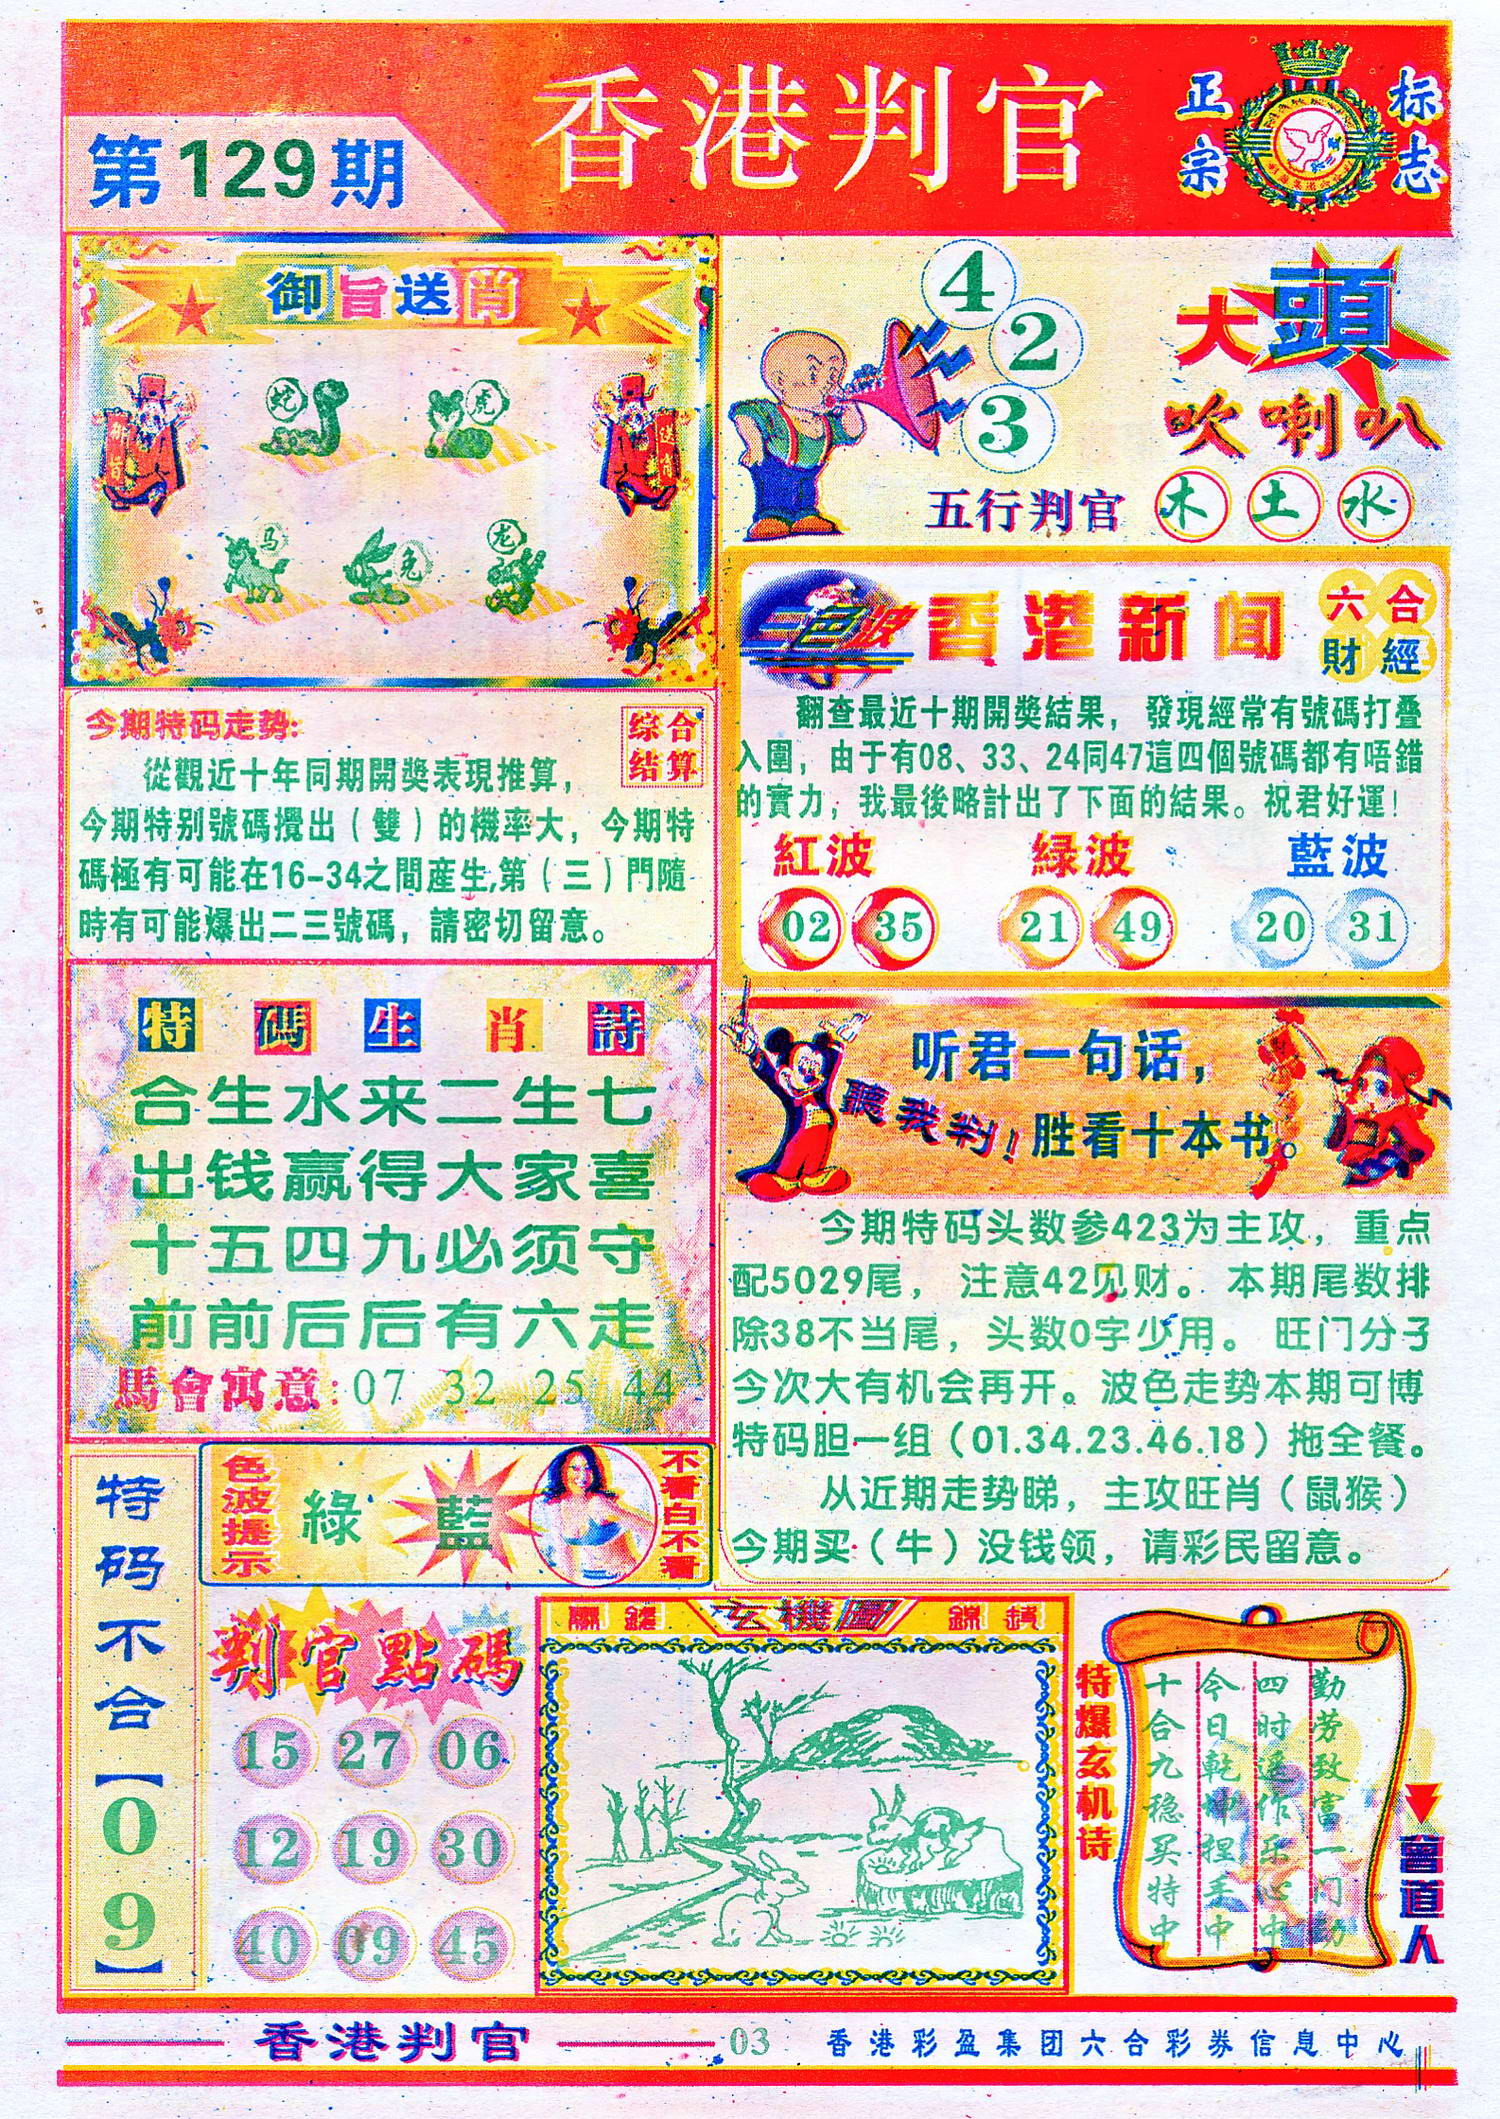 香港判官
第129期
正宗
标志
御旨送肖
蛇
虎
御旨
送肖
马
兔
龙
4
2
3
大頭
吹喇叭
五行判官 木 土 水
今期特码走势:
综合
结算
從觀近十年同期開獎表現推算，
今期特别號碼攪出（雙）的機率大，今期特
碼極有可能在16-34之間産生,第（三）門隨
時有可能爆出二三號碼，請密切留意。
三色波
香港新闻
六合
財經
翻查最近十期開獎結果，發現經常有號碼打叠
入圍，由于有08、33、24同47這四個號碼都有唔錯
的實力，我最後略計出了下面的結果。祝君好運！
紅波 緑波 藍波
02 35 21 49 20 31
特碼生肖詩
合生水来二生七
出钱赢得大家喜
十五四九必须守
前前后后有六走
馬會寓意:07 32 25 44
听君一句话，
聽我判！
胜看十本书。
今期特码头数参423为主攻，重点
配5029尾，注意42见财。本期尾数排
除38不当尾，头数0字少用。旺门分子
今次大有机会再开。波色走势本期可博
特码胆一组（01.34.23.46.18）拖全餐。
从近期走势睇，主攻旺肖（鼠猴）
今期买（牛）没钱领，请彩民留意。
特码不合【09】
色波提示
綠 藍
不看白不看
判官點碼
15 27 06
12 19 30
40 09 45
玄機圖
特爆玄机诗
勤劳致富一门勤
四时逐作乐心中
今日乾坤捏手中
十合九稳买特中
曾道人
香港判官
03
香港彩盈集团六合彩券信息中心